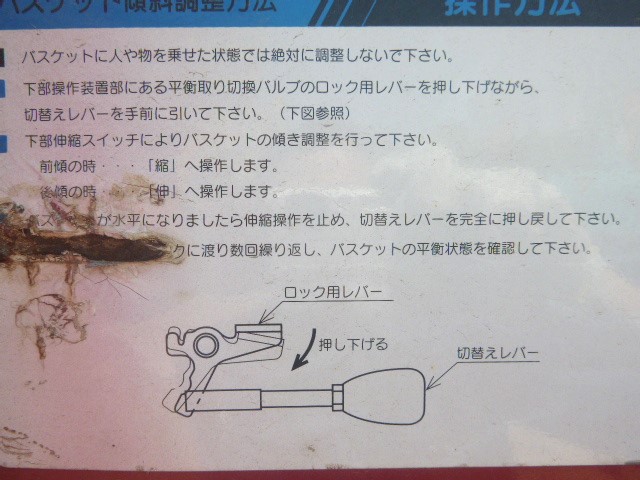 バスケット傾斜調整方法
操作方法
バスケットに人や物を乗せた状態では絶対に調整しないで下さい。
下部操作装置部にある平衡取り切換バルブのロック用レバーを押し下げながら、
切替えレバーを手前に引いて下さい。（下図参照）
下部伸縮スイッチによりバスケットの傾き調整を行って下さい。
前傾の時・・・「縮」へ操作します。
後傾の時・・・「伸」へ操作します。
が水平になりましたら伸縮操作を止め、切替えレバーを完全に押し戻して下さい。
クに渡り数回繰り返し、バスケットの平衡状態を確認して下さい。
ロック用レバー
押し下げる
切替えレバー